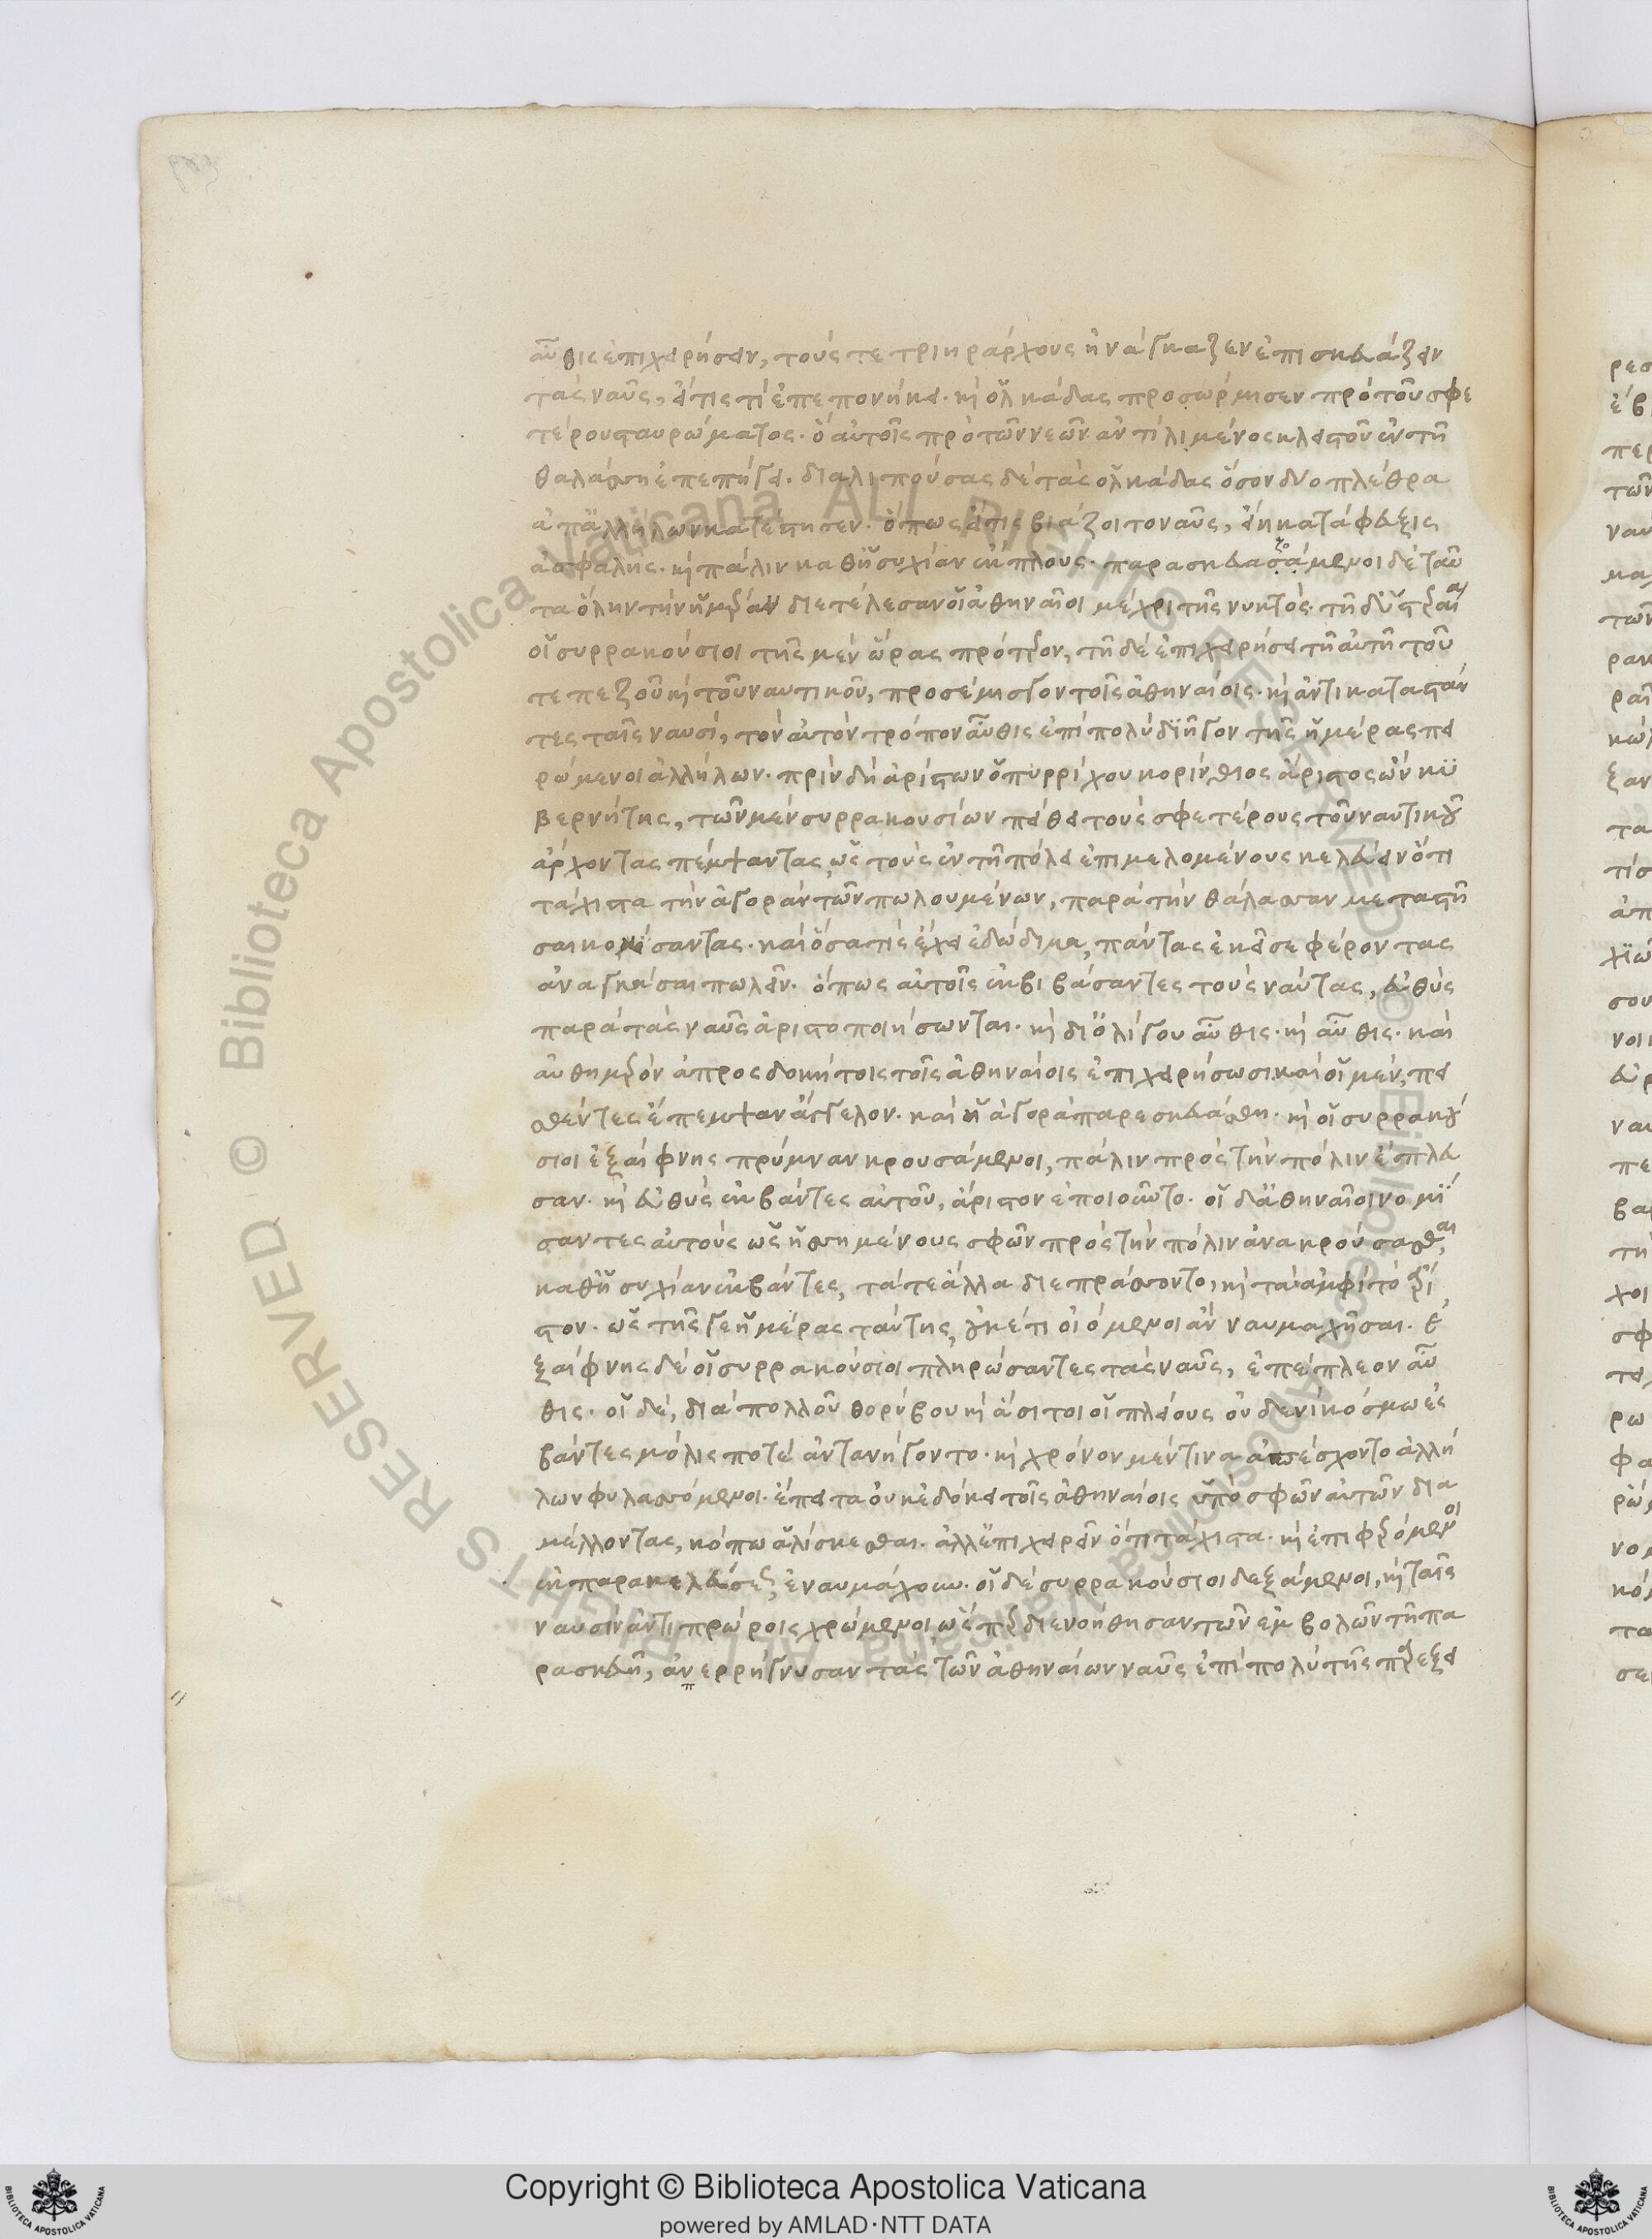 αὖθις ἐπιχειρήσειν, τούς τε τριηράρχους ἠνάγκαζεν ἐπισκευάζειν
τὰς ναῦς, εἴ τίς τι ἐπεπονήκει. καὶ ὁλκάδας προσώρμισεν πρὸ τοῦ σφε
τέρου σταυρώματος. ὃ αὐτοῖς πρὸ τῶν νεῶν ἀντὶ λιμένος κλειστοῦ ἐν τῆ
θαλάσση ἐπεπήγει. διαλιπούσας δὲ τὰς ὁλκάδας ὅσον δύο πλέθρα
ἀπ' ἀλλήλων κατέστησεν. ὅπως εἴ τις βιάζοιτο ναῦς, εἴη κατάφευξις
ἀσφαλὴς. καὶ πάλιν καθ' ἡσυχίαν ἔκπλους. παρασκευασάμενοι δὲ ταῦ
ζο
τα ὅλην τὴν ἡμέραν διετέλεσαν οἱ ἀθηναῖοι μέχρι τῆς νυκτός. τῆ δ' ὑστεραίαι
οἱ συρρακούσιοι τῆς μὲν ὥρας πρότερον, τῆ δὲ ἐπιχειρήσει τῆ αὐτῆ τοῦ
τε πεζοῦ καὶ τοῦ ναυτικοῦ, προσέμισγον τοῖς ἀθηναίοις. καὶ ἀντικαταστάν
τες ταῖς ναυσὶ, τὸν αὐτὸν τρόπον αὖθις ἐπὶ πολὺ διῆγον τῆς ἡμέρας πει
ρώμενοι ἀλλήλων. πρὶν δὴ ἀρίστων ὁ πυρρίχου κορίνθιος ἄριστος ὢν κυ
βερνήτης, τῶν μὲν συρρακουσίων πείθει τοὺς σφετέρους τοῦ ναυτικοῦ
ἄρχοντας πέμψαντας ὡς τοὺς ἐν τῆ πόλει ἐπιμελομένους κελεύειν ὅτι
τάχιστα τὴν ἀγορὰν τῶν πωλουμένων, παρὰ τὴν θάλασσαν μεταστῆ
σαι κομίσαντας. καὶ ὅσα τις ἔχει ἐδώδιμα, πάντας ἐκεῖσε φέροντας
ἀναγκάσαι πωλεῖν. ὅπως αὐτοῖς ἐκβιβάσαντες τοὺς ναύτας, εὐθὺς
παρὰ τὰς ναῦς ἀριστοποιήσωνται. καὶ δι' ὀλίγου αὖθις. καὶ αὖθις. καὶ
αὐθημερὸν ἀπροσδοκήτοις τοῖς ἀθηναίοις ἐπιχειρήσωσι. καὶ οἱ μὲν, πει
σθέντες ἔπεμψαν ἄγγελον. καὶ ἡ ἀγορὰ παρεσκευάσθη. καὶ οἱ συρρακού
σιοι ἐξαίφνης πρύμναν κρουσάμενοι, πάλιν πρὸς τὴν πόλιν ἔπλευ
σαν. καὶ εὐθὺς ἐκβάντες αὐτοῦ, ἄριστον ἐποιοῦντο. οἱ δ' ἀθηναῖοι νομί
σαντες αὐτοὺς ὡς ἡσσημένους σφῶν πρὸς τὴν πόλιν ἀνακρούσασθαι,
καθ' ἡσυχίαν ἐκβάντες, τά τε ἄλλα διεπράσσοντο, καὶ τὰ ἀμφὶ τὸ ἄρι
στον. ὡς τῆς γε ἡμέρας ταύτης, οὐκέτι οἰόμενοι ἂν ναυμαχῆσαι. ἐ
ξαίφνης δὲ οἱ συρρακούσιοι πληρώσαντες τὰς ναῦς, ἐπέπλεον αὖ
θις. οἱ δὲ, διὰ πολλοῦ θορύβου καὶ ἄσιτοι οἱ πλείους οὐδενὶ κόσμω ἐσ
βάντες μόλις ποτὲ ἀντανήγοντο. καὶ χρόνον μέν τινα ἀπέσχοντο ἀλλή
λων φυλασσόμενοι. ἔπειτα οὐκ ἐδόκει τοῖς ἀθηναίοις ὑπὸ σφῶν αὐτῶν δια
μέλλοντας, κόπω ἁλίσκεσθαι. ἀλλ' ἐπιχειρεῖν ὅτι τάχιστα. καὶ ἐπιφερόμενοι
ἐκ παρακελεύσεως ἐναυμάχουν. οἱ δὲ συρρακούσιοι δεξάμενοι, καὶ ταῖς
ναυσὶν ἀντιπρώροις χρώμενοι ὥσπερ διενοήθησαν, τῶν ἐμβολῶν τῆ πα
ρασκευῆ, ἀνερρήγνυσαν τὰς τῶν ἀθηναίων ναῦς ἐπὶ πολὺ τῆς παρεξει
π
Copyright © Biblioteca Apostolica Vaticana
powered by AMLAD·NTT DATA